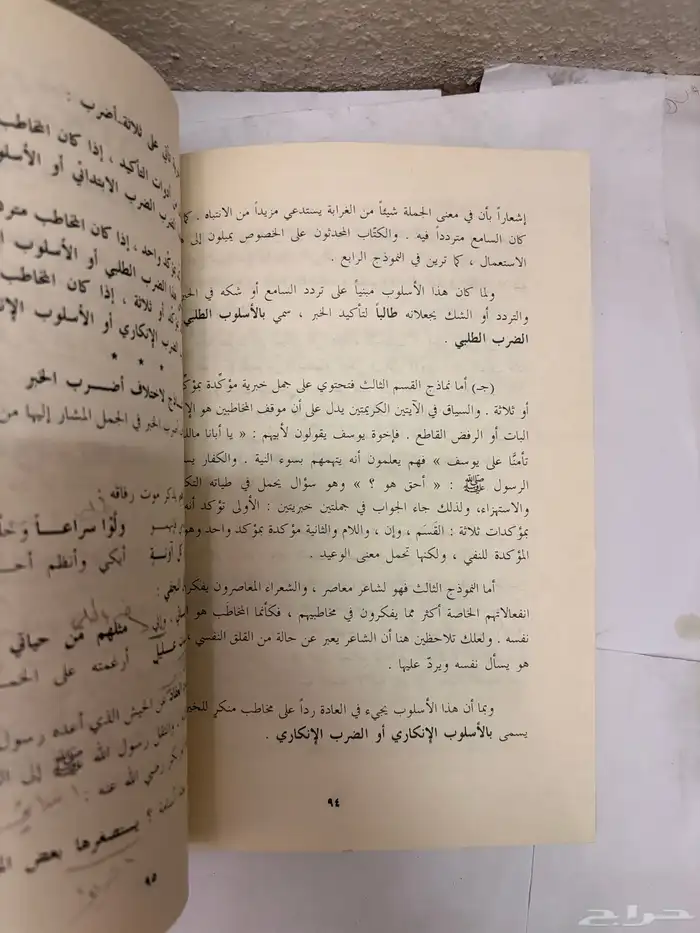 إشعاراً بأن في معنى الجملة شيئاً من الغرابة يستدعي مزيداً من الانتباه .
كان السامع متردداً فيه . والكتّاب المحدثون على الخصوص يميلون إلى
الاستعمال ، كما ترين في النموذج الرابع .
ولما كان هذا الأسلوب مبنياً على تردد السامع أو شكه في
والتردد أو الشك يجعلانه طالباً لتأكيد الخبر ، سمي بالأسلوب الطلبي
الضرب الطلبي .
(جـ) أما نماذج القسم الثالث فتحتوي على جمل خبرية مؤكّدة
أو ثلاثة . والسياق في الآيتين الكريمتين يدل على أن موقف المخاطبين هو
البات أو الرفض القاطع . فإخوة يوسف يقولون لأبيهم : « يا أبانا مالك
تأمنّا على يوسف » فهم يعلمون أنه يتهمهم بسوء النية . والكفار
الرسول ﷺ : « أحق هو ؟ » وهو سؤال يحمل في طياته
والاستهزاء، ولذلك جاء الجواب في جملتين خبريتين : الأولى تؤكد
بمؤكدات ثلاثة : القَسَم ، وإن ، واللام والثانية مؤكدة بمؤكد واحد وهو
المؤكدة للنفي ، ولكنها تحمل معنى الوعيد .
أما النموذج الثالث فهو لشاعر معاصر ، والشعراء المعاصرون يفكرون
انفعالاتهم الخاصة أكثر مما يفكرون في مخاطبيهم ، فكأنما المخاطب هو
نفسه . ولعلك تلاحظين هنا أن الشاعر يعبر عن حالة من القلق النفسي
هو يسأل نفسه ويردّ عليها .
وبما أن هذا الأسلوب يجيء في العادة رداً على مخاطب منكر للخبر
يسمى بالأسلوب الإنكاري أو الضرب الإنكاري .
٩٤
على ثلاثة أضرب :
أدوات التأكيد ، إذا كان المخاطب
الضرب الابتدائي أو الأسلوب
واحد ، إذا كان المخاطب
الضرب الطلبي أو الأسلوب
أو ثلاثة ، إذا كان المخاطب
الإنكاري أو الأسلوب
* * *
لاختلاف أضرب الخبر
ضرب الخبر في الجمل المشار إليها من
يذكر موت رفاقه
ولّوا سراعاً
أبكي وأنظم
مثلهم من حياتي
أرغمته على
عن الجيش الذي أعده رسول
رسول الله ﷺ إلى
رضي الله عنه :
؟ يستصغرها بعض
٩٥
حراج